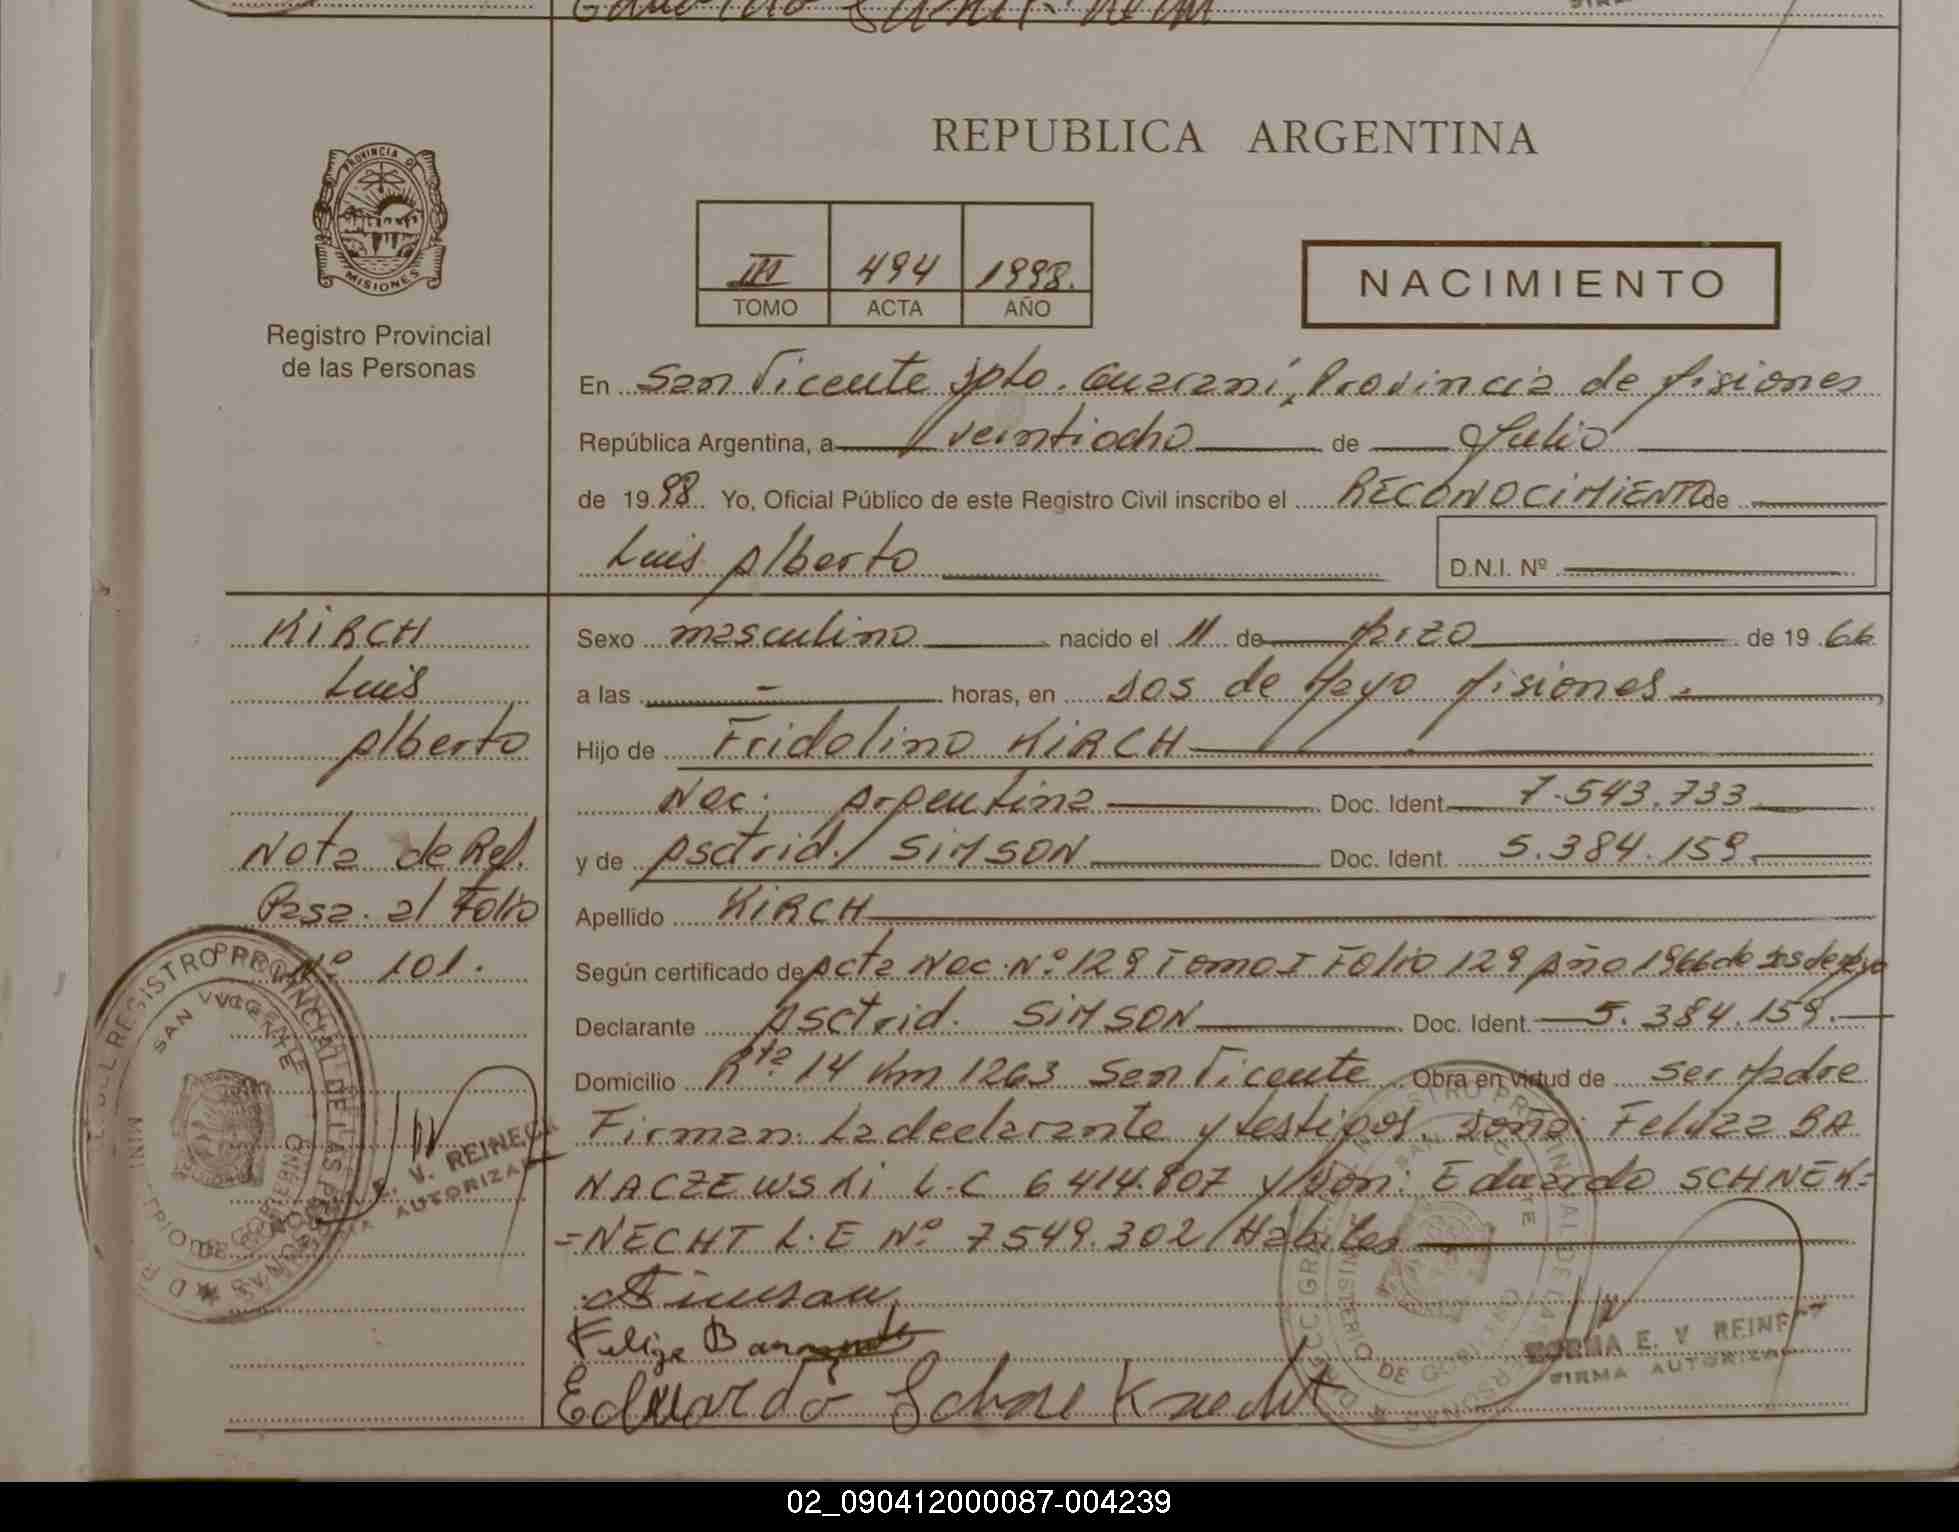 REPUBLICA ARGENTINA
PROVINCIA DE
MISIONES
Registro Provincial
de las Personas
III 494 1998.
TOMO ACTA AÑO
NACIMIENTO
En San Vicente Dpto. Guaraní, Provincia de Misiones
República Argentina, a veintiocho de Julio
de 1998 Yo, Oficial Público de este Registro Civil inscribo el RECONOCIMIENTO de
Luis Alberto D.N.I. Nº
KIRCH
Luis
Alberto
Nota de Ref.
Pasa al Folio
Nº 101.
Sexo masculino nacido el 11 de Marzo de 1966
a las - horas, en Dos de Mayo Misiones.
Hijo de Fridolino KIRCH
Nac. Argentina Doc. Ident. 7.543.733
y de Asctrid. SIMSON Doc. Ident. 5.384.159
Apellido KIRCH
Según certificado de Acta Nac. Nº 129 Tomo I Folio 129 Año 1966 de Dos de Mayo
Declarante Asctrid. SIMSON Doc. Ident. 5.384.159.
Domicilio Rta. 14 Km 1263 San Vicente Obra en virtud de ser Madre
Firman: La declarante y testigos, Doña: Feliza BA
NACZEWSKI L.C 6414.807 y Don: Eduardo SCHNEK=
=NECHT L.E Nº 7549.302 / Hábiles
ASimson
Felisa
Eduardo
NORMA E. V. REINECK
FIRMA AUTORIZADA
E. V. REINECK
AUTORIZADA
SAN VICENTE
02_090412000087-004239